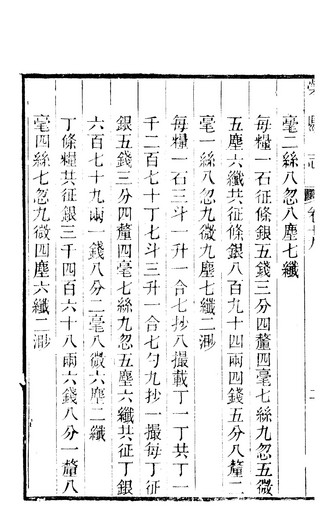 毫二絲八忽八塵七纖
每糧一石征條銀五錢三分四釐四毫七絲九忽五微
五塵六纖共征條銀八百九十四兩四錢五分八釐二
毫一絲八忽九微九塵二纖二渺
每糧一石三斗一升一合七抄八撮載丁一丁共丁一
千二百七十丁七斗三升一合七勺九抄一撮每丁征
銀五錢三分四釐四毫七絲九忽五塵六纖共征丁銀
六百七十九兩一錢八分二毫八微六塵二纖
丁條糧共征銀三千四百六十八兩六錢八分一釐八
毫四絲七忽九微四塵六纖二渺